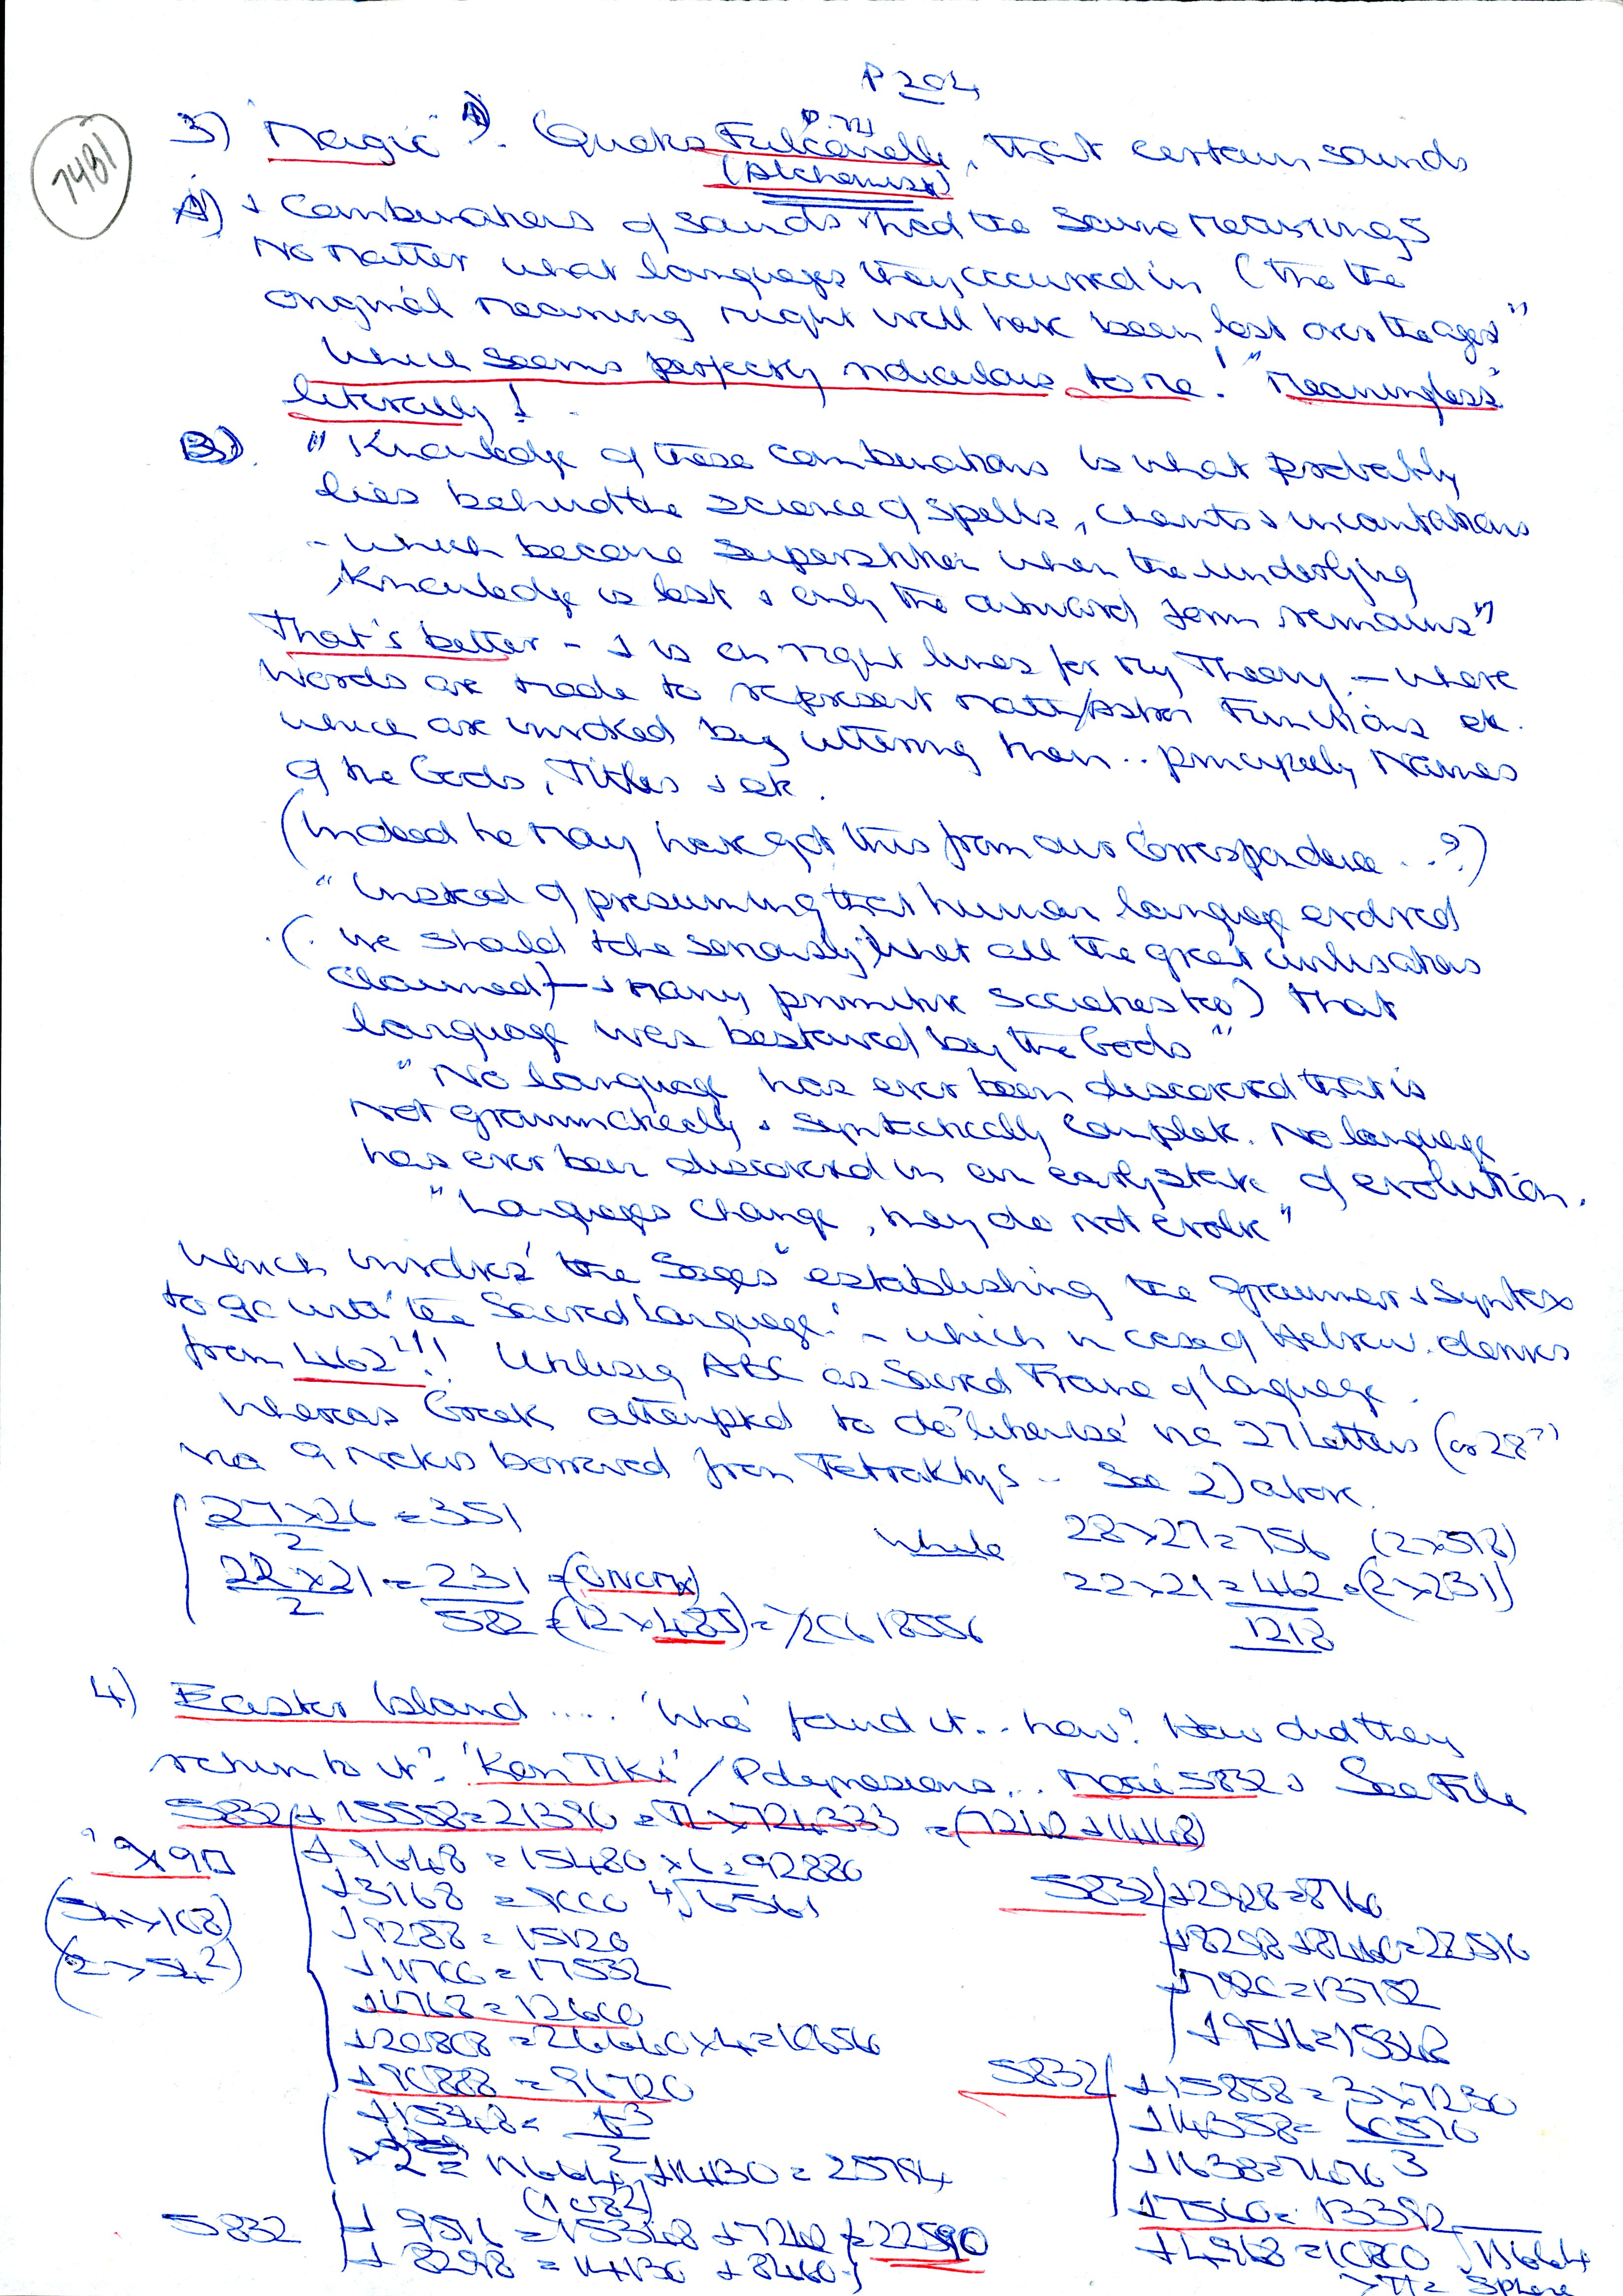 P 204
7481
3) "Magic" A). (Quotes Fulcanelli, that certain sounds
(Alchemist)
A) & Combinations of sounds had the same meanings
No matter what languages they occurred in (the the
original meaning might well have been lost over the ages"
Which seems perfectly ridiculous to me! "Meaningless"
literally!
B) "Knowledge of these combinations is what probably
lies behind the science of spells, chants & incantations
- which become superstition when the underlying
knowledge is lost & only the outward form remains"
That's better - & is on right lines for my Theory. - where
words are made to represent Math/Astro Functions etc.
which are invoked by uttering them.. principally Names
of the Gods, Titles & etc.
(Indeed he may have got this from our Correspondence ..?)
"Instead of presuming that human language evolved
(we should take seriously what all the great civilisations
claimed - & many primitive societies too) that
language was bestowed by the Gods"
"No language has ever been discovered that is
not grammatically & syntactically complete. No language
has ever been discovered in an early state of evolution.
"Languages change, they do not evolve"
which involves 'the Sages' establishing the grammar & syntax
to go with 'the Sacred Language' - which in case of Hebrew derives
from 462"!! Utilising ABC as Sacred Frame of language.
whereas Greek attempted to do 'likewise' via 27 Letters (or 28??
via 9 borrowed from Tetraktys .. See 2) above.
27x26 = 351
2
While 28x27=756 (2x378)
22x21 = 231
2
22x21=462=(2x231)
582 = (12x485) = 7/20618556
1218
4) Easter Island ..... 'Who' found it.. how? How did they
return to it? 'Kon Tiki' / Polynesians... Moai 5832 & See File
5832 + 15558=21390 = =(7242+14148)
9x9
+9648 = 15480 x6=92880
(54x108)
+3168 = 9000 4√6561
(2x54²)
+9288 = 15120
+11700=17532
+6768 = 12600
+20808 = 26640x4=10656
+90888 = 96720
x2= 11664, +14130 = 25794
5832 + 9516 = 15348 +7242 = 22590
+ 8298 = 14130 + 8460
5832 +2928=8760
+8298+8460=22590
+15858=3x7230
+14358=
+1638=7470
+7560=13392
+4968=10800 √11664
Sphere